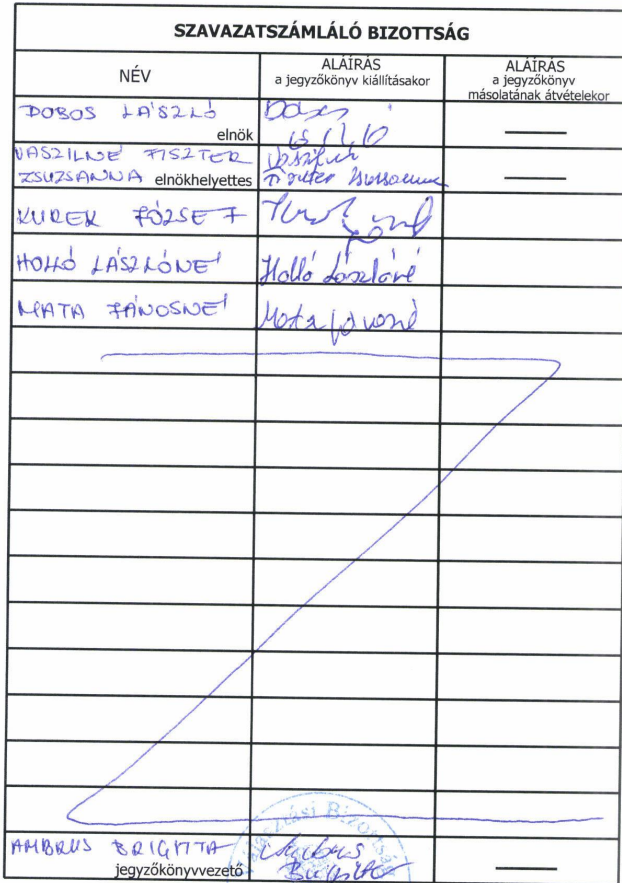 SZAVAZATSZÁMLÁLÓ BIZOTTSÁG
NÉV
ALÁÍRÁS
a jegyzőkönyv kiállításakor
ALÁÍRÁS
a jegyzőkönyv
másolatának átvételekor
DOBOS LÁSZLÓ
elnök
VASZILNÉ FISZTER
ZSUZSANNA elnökhelyettes
KUREK JÓZSEF
HOLLÓ LÁSZLÓNÉ Holló Lászlóné
MATA JÁNOSNÉ Mata Jánosné
AMBRUS BRIGITTA Ambrus
jegyzőkönyvvezető Brigitta
Választási Bizottság